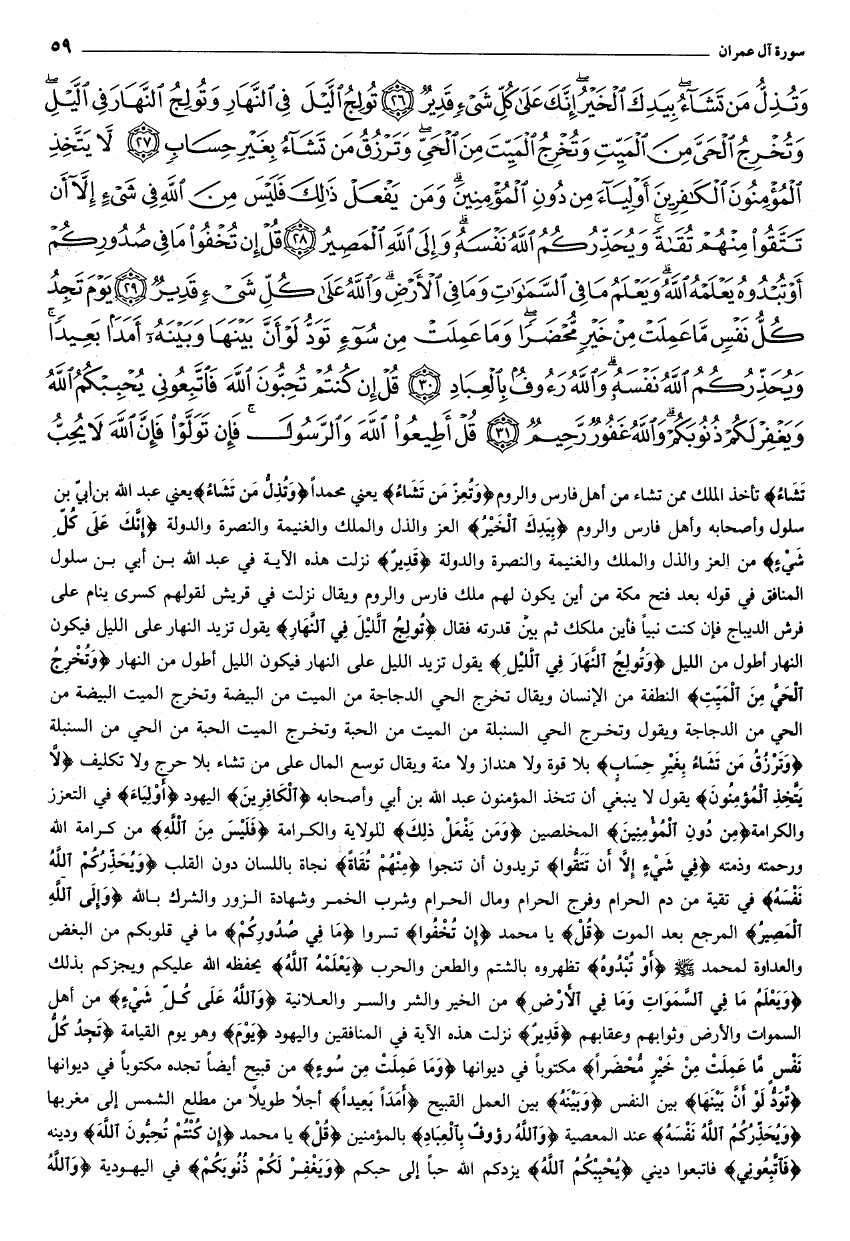 سورة آل عمران ٥٩
وَتُذِلُّ مَن تَشَآءُ بِيَدِكَ ٱلْخَيْرُ إِنَّكَ عَلَىٰ كُلِّ شَىْءٍ قَدِيرٌ ﴿٢٦﴾ تُولِجُ ٱلَّيْلَ فِى ٱلنَّهَارِ وَتُولِجُ ٱلنَّهَارَ فِى ٱلَّيْلِ
وَتُخْرِجُ ٱلْحَىَّ مِنَ ٱلْمَيِّتِ وَتُخْرِجُ ٱلْمَيِّتَ مِنَ ٱلْحَىِّ وَتَرْزُقُ مَن تَشَآءُ بِغَيْرِ حِسَابٍ ﴿٢٧﴾ لَّا يَتَّخِذِ
ٱلْمُؤْمِنُونَ ٱلْكَٰفِرِينَ أَوْلِيَآءَ مِن دُونِ ٱلْمُؤْمِنِينَ وَمَن يَفْعَلْ ذَٰلِكَ فَلَيْسَ مِنَ ٱللَّهِ فِى شَىْءٍ إِلَّآ أَن
تَتَّقُوا۟ مِنْهُمْ تُقَىٰةً وَيُحَذِّرُكُمُ ٱللَّهُ نَفْسَهُۥ وَإِلَى ٱللَّهِ ٱلْمَصِيرُ ﴿٢٨﴾ قُلْ إِن تُخْفُوا۟ مَا فِى صُدُورِكُمْ
أَوْ تُبْدُوهُ يَعْلَمْهُ ٱللَّهُ وَيَعْلَمُ مَا فِى ٱلسَّمَٰوَٰتِ وَمَا فِى ٱلْأَرْضِ وَٱللَّهُ عَلَىٰ كُلِّ شَىْءٍ قَدِيرٌ ﴿٢٩﴾ يَوْمَ تَجِدُ
كُلُّ نَفْسٍ مَّا عَمِلَتْ مِنْ خَيْرٍ مُّحْضَرًا وَمَا عَمِلَتْ مِن سُوٓءٍ تَوَدُّ لَوْ أَنَّ بَيْنَهَا وَبَيْنَهُۥٓ أَمَدًۢا بَعِيدًا
وَيُحَذِّرُكُمُ ٱللَّهُ نَفْسَهُۥ وَٱللَّهُ رَءُوفٌۢ بِٱلْعِبَادِ ﴿٣٠﴾ قُلْ إِن كُنتُمْ تُحِبُّونَ ٱللَّهَ فَٱتَّبِعُونِى يُحْبِبْكُمُ ٱللَّهُ
وَيَغْفِرْ لَكُمْ ذُنُوبَكُمْ وَٱللَّهُ غَفُورٌ رَّحِيمٌ ﴿٣١﴾ قُلْ أَطِيعُوا۟ ٱللَّهَ وَٱلرَّسُولَ فَإِن تَوَلَّوْا۟ فَإِنَّ ٱللَّهَ لَا يُحِبُّ
تَشَاءُ﴾ تأخذ الملك ممن تشاء من أهل فارس والروم ﴿وَتُعِزُّ مَن تَشَاءُ﴾ يعني محمداً ﴿وَتُذِلُّ مَن تَشَاءُ﴾ يعني عبد الله بن أبيّ بن
سلول وأصحابه وأهل فارس والروم ﴿بِيَدِكَ ٱلْخَيْرُ﴾ العز والذل والملك والغنيمة والنصرة والدولة ﴿إِنَّكَ عَلَى كُلِّ
شَيْءٍ﴾ من العز والذل والملك والغنيمة والنصرة والدولة ﴿قَدِيرٌ﴾ نزلت هذه الآية في عبد الله بن أبي بن سلول
المنافق في قوله بعد فتح مكة من أين يكون لهم ملك فارس والروم ويقال نزلت في قريش لقولهم كسرى ينام على
فرش الديباج فإن كنت نبياً فأين ملكك ثم بيّن قدرته فقال ﴿تُولِجُ ٱلَّيْلَ فِي ٱلنَّهَارِ﴾ يقول تزيد النهار على الليل فيكون
النهار أطول من الليل ﴿وَتُولِجُ ٱلنَّهَارَ فِي ٱلَّيْلِ﴾ يقول تزيد الليل على النهار فيكون الليل أطول من النهار ﴿وَتُخْرِجُ
ٱلْحَيَّ مِنَ ٱلْمَيِّتِ﴾ النطفة من الإنسان ويقال تخرج الحي الدجاجة من الميت من البيضة وتخرج الميت البيضة من
الحي من الدجاجة ويقول وتخرج الحي السنبلة من الميت من الحبة وتخرج الميت الحبة من الحي من السنبلة
﴿وَتَرْزُقُ مَن تَشَاءُ بِغَيْرِ حِسَابٍ﴾ بلا قوة ولا هنداز ولا منة ويقال توسع المال على من تشاء بلا حرج ولا تكليف ﴿لَّا
يَتَّخِذِ ٱلْمُؤْمِنُونَ﴾ يقول لا ينبغي أن تتخذ المؤمنون عبد الله بن أبي وأصحابه ﴿ٱلْكَافِرِينَ﴾ اليهود ﴿أَوْلِيَاءَ﴾ في التعزز
والكرامة ﴿مِن دُونِ ٱلْمُؤْمِنِينَ﴾ المخلصين ﴿وَمَن يَفْعَلْ ذٰلِكَ﴾ للولاية والكرامة ﴿فَلَيْسَ مِنَ ٱللَّهِ﴾ من كرامة الله
ورحمته وذمته ﴿فِي شَيْءٍ إِلاَّ أَن تَتَّقُوا﴾ تريدون أن تنجوا ﴿مِنْهُمْ تُقَاةً﴾ نجاة باللسان دون القلب ﴿وَيُحَذِّرُكُمُ ٱللَّهُ
نَفْسَهُ﴾ في تقية من دم الحرام وفرج الحرام ومال الحرام وشرب الخمر وشهادة الزور والشرك بالله ﴿وَإِلَى ٱللَّهِ
ٱلْمَصِيرُ﴾ المرجع بعد الموت ﴿قُلْ﴾ يا محمد ﴿إِن تُخْفُوا﴾ تسروا ﴿مَا فِي صُدُورِكُمْ﴾ ما في قلوبكم من البغض
والعداوة لمحمد ﷺ ﴿أَوْ تُبْدُوهُ﴾ تظهروه بالشتم والطعن والحرب ﴿يَعْلَمْهُ ٱللَّهُ﴾ يحفظه الله عليكم ويجزكم بذلك
﴿وَيَعْلَمُ مَا فِي ٱلسَّمَوَاتِ وَمَا فِي ٱلْأَرْضِ﴾ من الخير والشر والسر والعلانية ﴿وَٱللَّهُ عَلَى كُلِّ شَيْءٍ﴾ من أهل
السموات والأرض وثوابهم وعقابهم ﴿قَدِيرٌ﴾ نزلت هذه الآية في المنافقين واليهود ﴿يَوْمَ﴾ وهو يوم القيامة ﴿تَجِدُ كُلُّ
نَفْسٍ مَّا عَمِلَتْ مِنْ خَيْرٍ مُّحْضَراً﴾ مكتوباً في ديوانها ﴿وَمَا عَمِلَتْ مِن سُوءٍ﴾ من قبيح أيضاً تجده مكتوباً في ديوانها
﴿تَوَدُّ لَوْ أَنَّ بَيْنَهَا﴾ بين النفس ﴿وَبَيْنَهُ﴾ بين العمل القبيح ﴿أَمَداً بَعِيداً﴾ أجلاً طويلاً من مطلع الشمس إلى مغربها
﴿وَيُحَذِّرُكُمُ ٱللَّهُ نَفْسَهُ﴾ عند المعصية ﴿وَٱللَّهُ رؤوفٌ بِٱلْعِبَادِ﴾ بالمؤمنين ﴿قُلْ﴾ يا محمد ﴿إِن كُنْتُمْ تُحِبُّونَ ٱللَّهَ﴾ ودينه
﴿فَٱتَّبِعُونِي﴾ فاتبعوا ديني ﴿يُحْبِبْكُمُ ٱللَّهُ﴾ يزدكم الله حباً إلى حبكم ﴿وَيَغْفِرْ لَكُمْ ذُنُوبَكُمْ﴾ في اليهودية ﴿وَٱللَّهُ